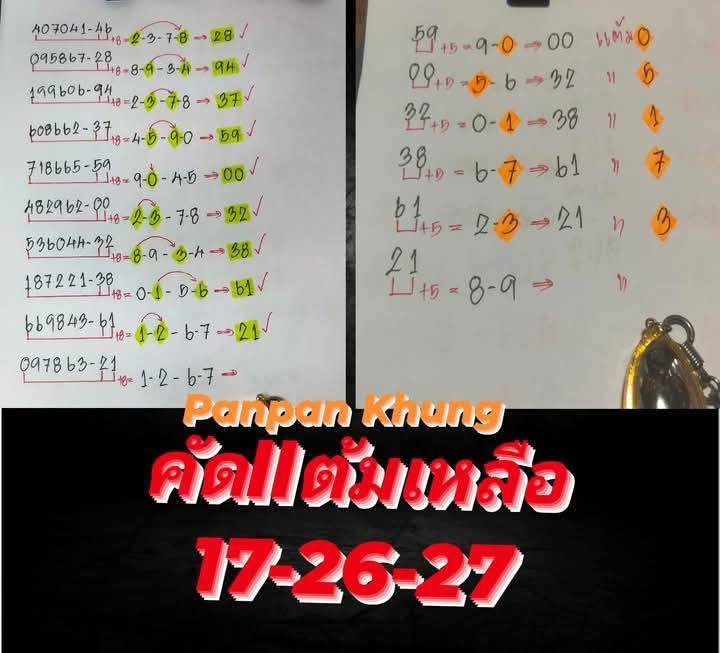 407041-46
+8=2-3-7-8→28✓
095867-28
+8=8-9-3-4→94✓
199606-94
+8=2-3-7-8→37✓
608662-37
+8=4-5-9-0→59✓
718665-59
+8=9-0-4-5→00✓
482962-00
+8=2-3-7-8→32✓
536044-32
+8=8-9-3-4→38✓
187221-38
+8=0-1-5-6→61✓
669843-61
+8=1-2-6-7→21✓
097863-21
+8=1-2-6-7→
59
+5=9-0⇒00 แต้ม0
00
+5=5-6⇒32 " 5
32
+5=0-1⇒38 " 1
38
+5=6-7⇒61 " 7
61
+5=2-3⇒21 " 3
21
+5=8-9⇒ "
Panpan Khung
คัดllต้มเหลือ
17-26-27